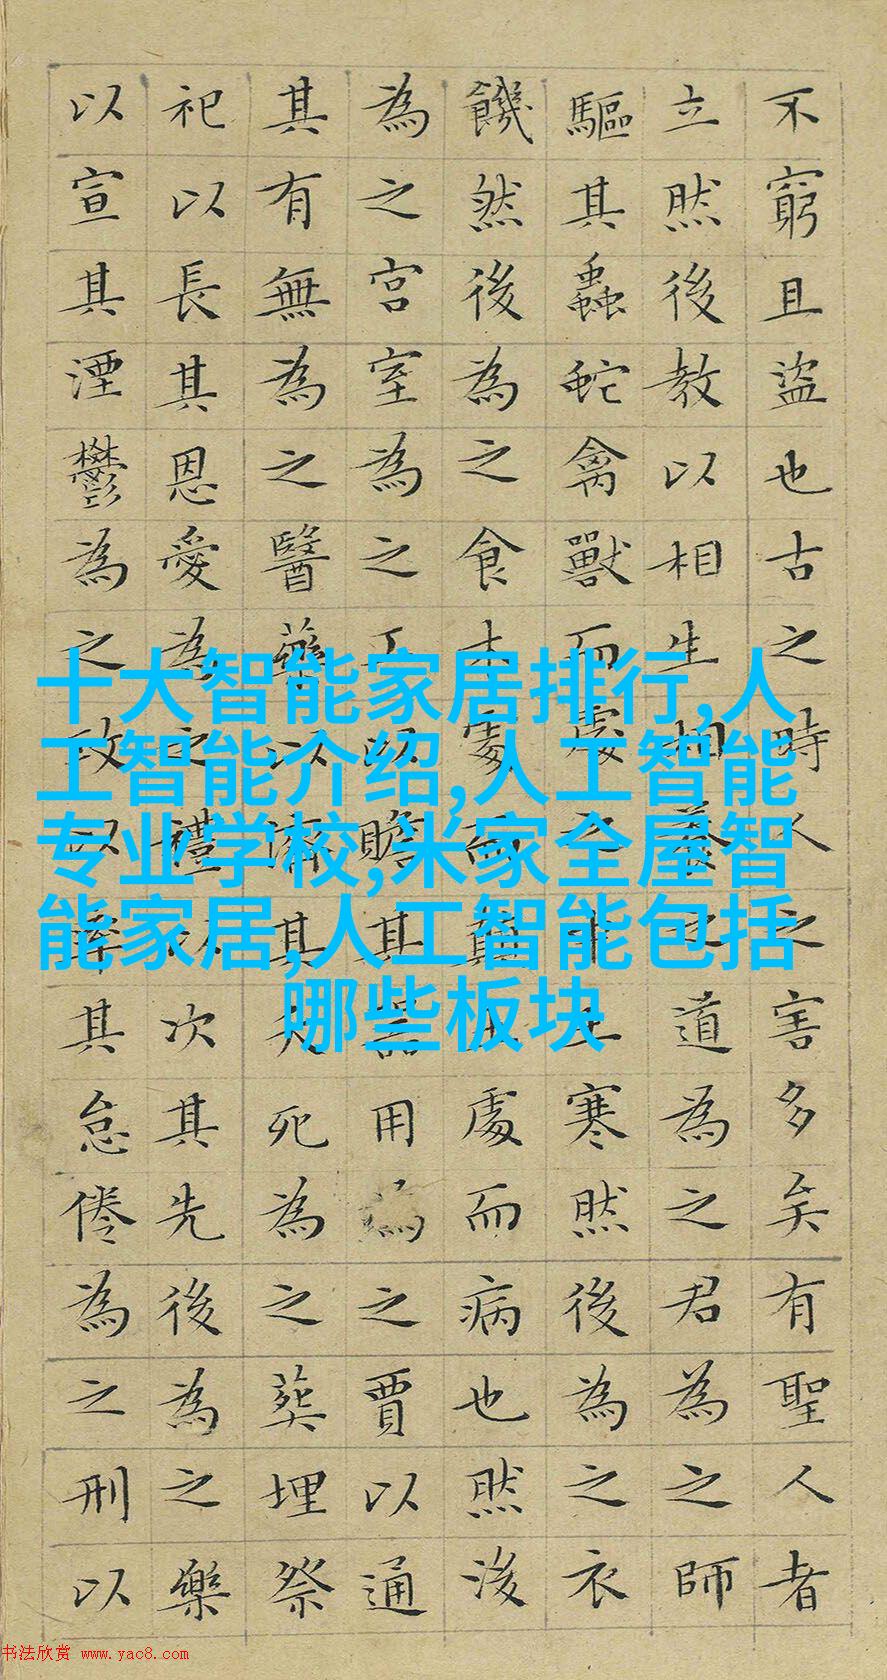 不窮且盜也古之時人之害多矣有聖人者
立然後教以相生相養之道為之君為之師
驅其蟲蛇禽獸而處之中土寒然後為之衣
饑然後為之食木處而顛土處而病也然後
為之宮室為之工以贍其器用為之賈以通
其有無為之醫藥以濟其夭死為之葬埋祭
祀以長其恩愛為之禮以次其先後為之樂
以宣其湮鬱為之政以率其怠倦為之刑以
十大智能家居排行,人
工智能介绍,人工智能
专业学校,米家全屋智
能家居,人工智能包括
哪些板块
书法欣赏 www.yac8.com